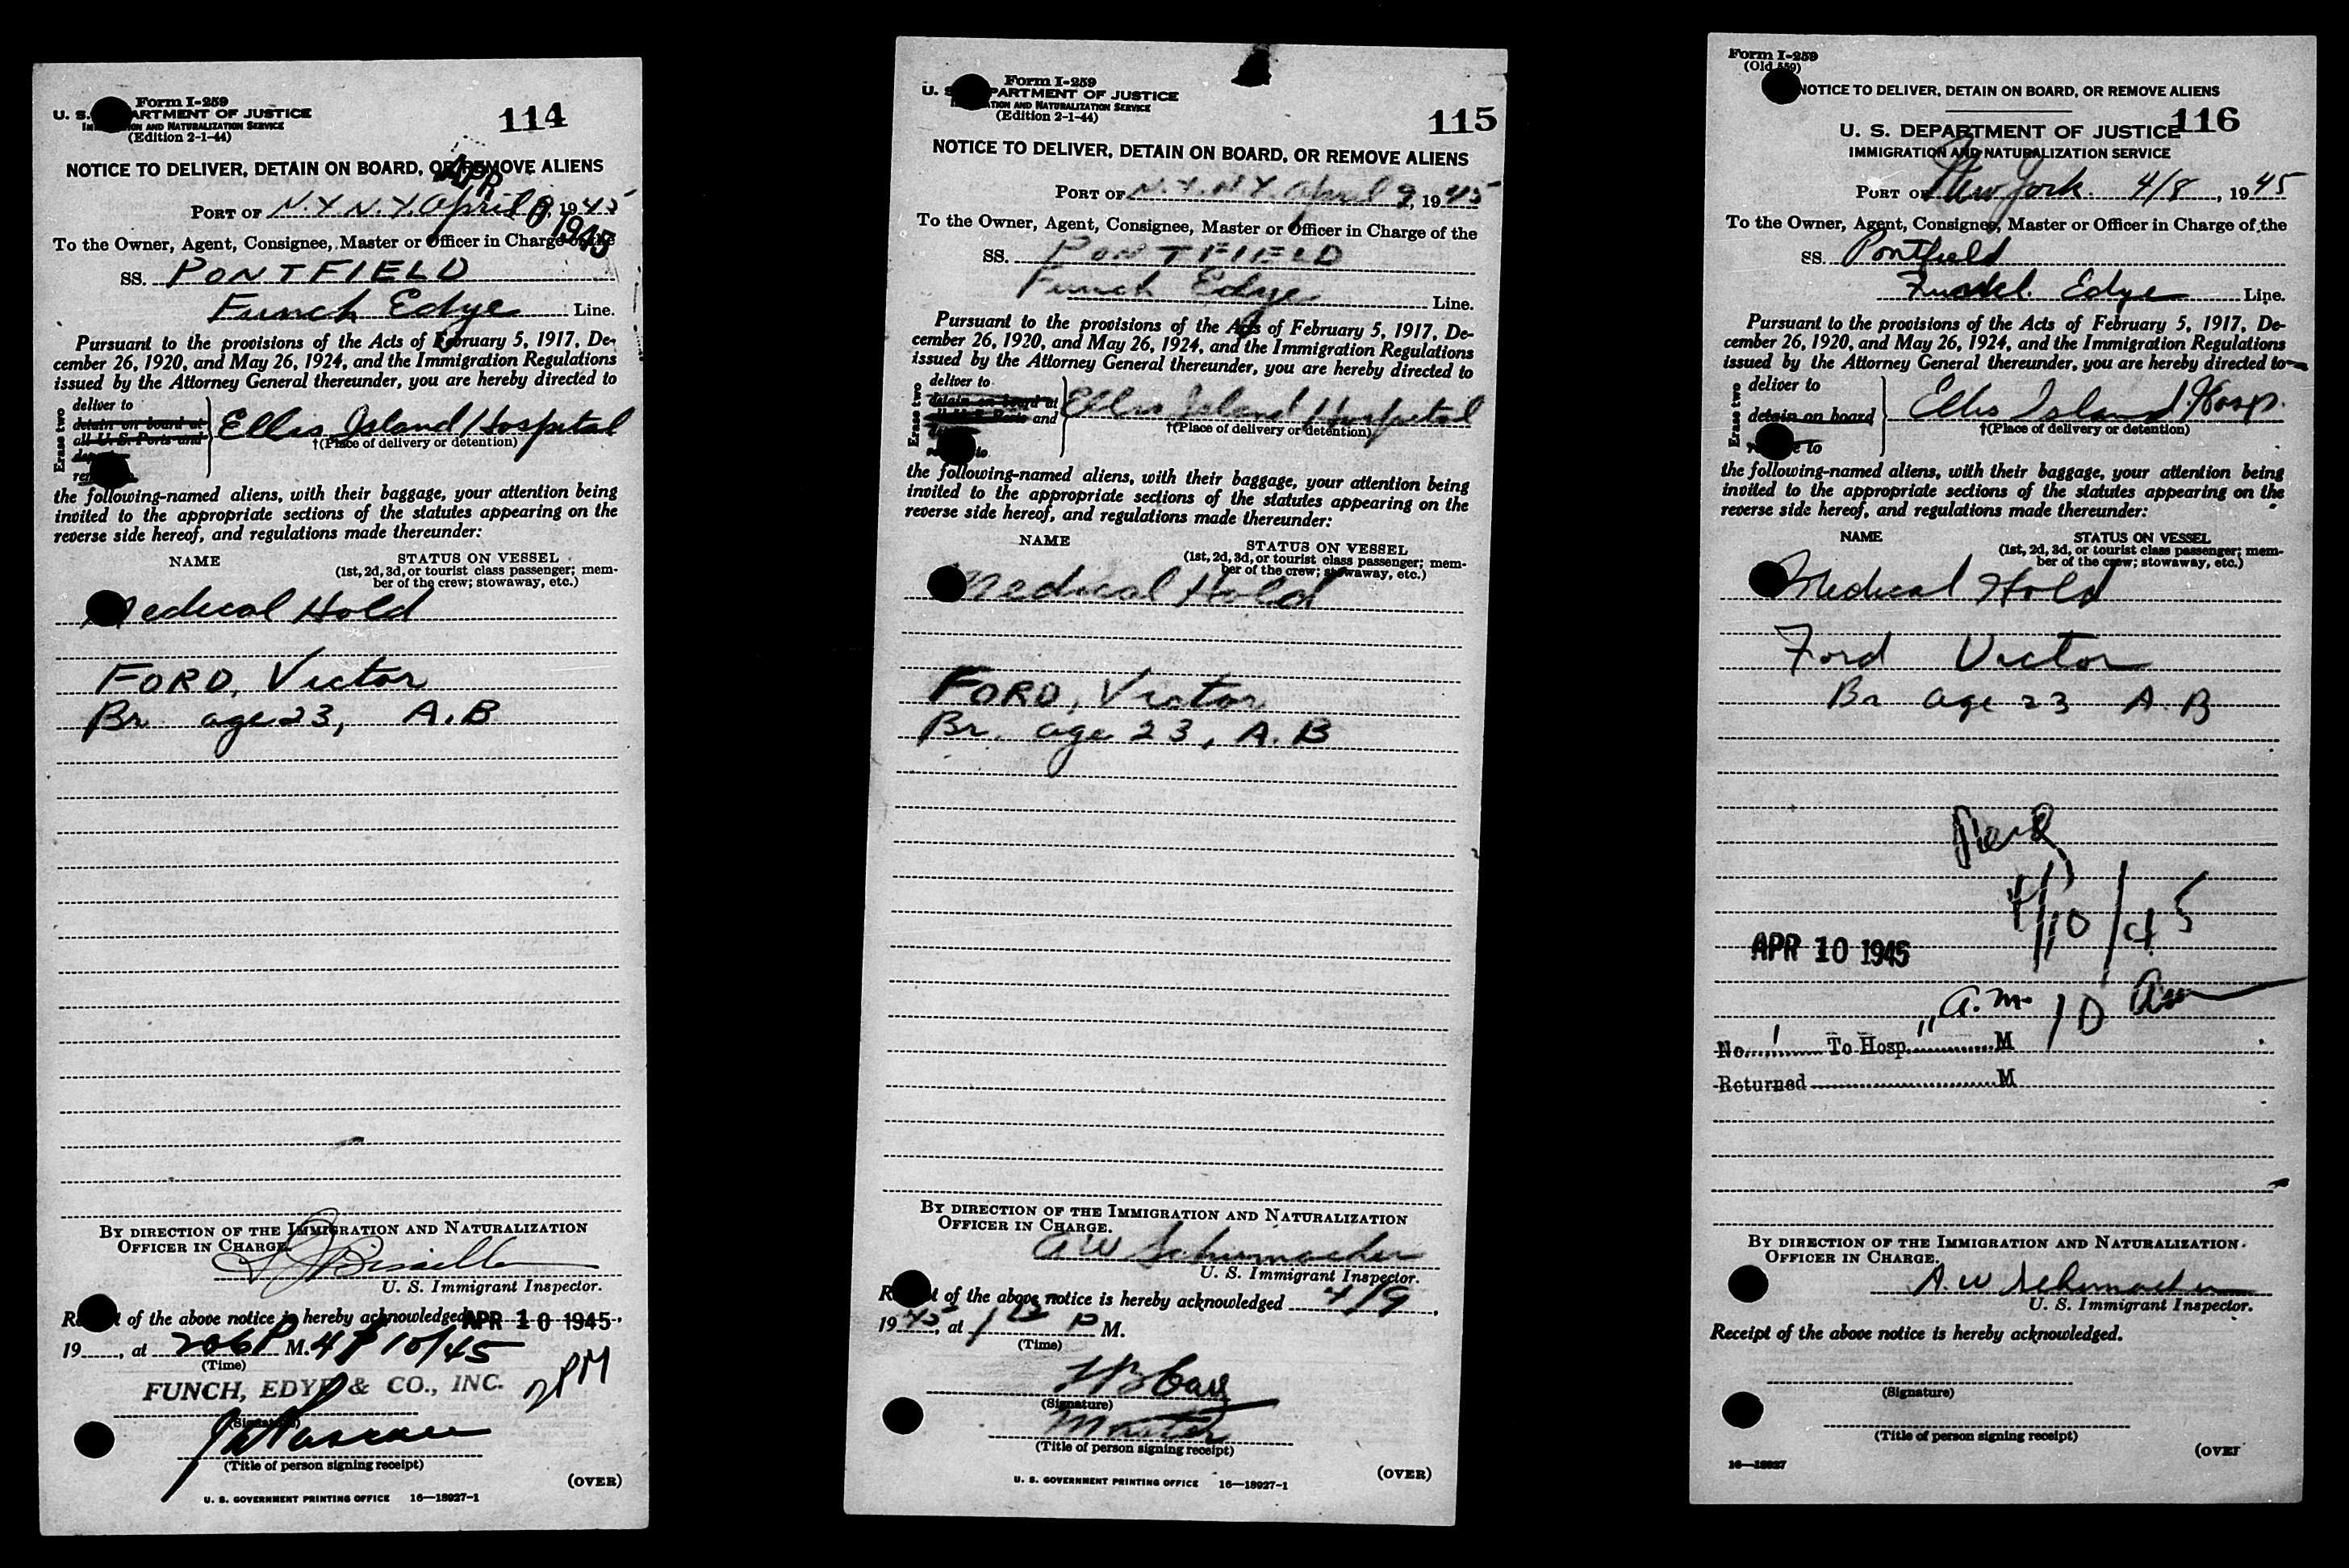 Form I-259
U. S. ARTMENT OF JUSTICE
ION AND NATURALIZATION SERVICE
(Edition 2-1-44)
114
NOTICE TO DELIVER, DETAIN ON BOARD, OR REMOVE ALIENS
APR
PORT OF N.Y. N.Y. April 9, 1945
1945
To the Owner, Agent, Consignee, Master or Officer in Charge of the
SS. PONTFIELD
Funch Edye Line.
Pursuant to the provisions of the Acts of February 5, 1917, De-
cember 26, 1920, and May 26, 1924, and the Immigration Regulations
issued by the Attorney General thereunder, you are hereby directed to
Erase two
deliver to
detain on board at
all U.S. Ports and
Ellis Island Hospital
†(Place of delivery or detention)
the following-named aliens, with their baggage, your attention being
invited to the appropriate sections of the statutes appearing on the
reverse side hereof, and regulations made thereunder:
NAME STATUS ON VESSEL
(1st, 2d, 3d, or tourist class passenger; mem-
ber of the crew; stowaway, etc.)
Medical Hold
FORD, Victor
Br age 23, A.B
BY DIRECTION OF THE IMMIGRATION AND NATURALIZATION
OFFICER IN CHARGE.
U. S. Immigrant Inspector.
of the above notice is hereby acknowledged APR 10 1945
19, at 206 P M. 4/10/45
(Time)
2PM
FUNCH, EDYE & CO., INC.
(Signature)
(Title of person signing receipt)
(OVER)
U. S. GOVERNMENT PRINTING OFFICE 16—18927-1
Form I-259
U. S. PARTMENT OF JUSTICE
TION AND NATURALIZATION SERVICE
(Edition 2-1-44)
115
NOTICE TO DELIVER, DETAIN ON BOARD, OR REMOVE ALIENS
PORT OF N.Y. N.Y. April 9, 1945
To the Owner, Agent, Consignee, Master or Officer in Charge of the
SS. PONTFIELD
Funch Edye Line.
Pursuant to the provisions of the Acts of February 5, 1917, De-
cember 26, 1920, and May 26, 1924, and the Immigration Regulations
issued by the Attorney General thereunder, you are hereby directed to
Erase two
deliver to
detain on board at
all U.S. Ports and
Ellis Island Hospital
†(Place of delivery or detention)
the following-named aliens, with their baggage, your attention being
invited to the appropriate sections of the statutes appearing on the
reverse side hereof, and regulations made thereunder:
NAME STATUS ON VESSEL
(1st, 2d, 3d, or tourist class passenger; mem-
ber of the crew; stowaway, etc.)
Medical Hold
FORD, Victor
Br. age 23, A.B
BY DIRECTION OF THE IMMIGRATION AND NATURALIZATION
OFFICER IN CHARGE.
A W Schumacher
U. S. Immigrant Inspector.
of the above notice is hereby acknowledged 4/9,
1945, at P M.
(Time)
(Signature)
Master
(Title of person signing receipt)
(OVER)
U. S. GOVERNMENT PRINTING OFFICE 16—18927-1
Form I-259
(Old 559)
NOTICE TO DELIVER, DETAIN ON BOARD, OR REMOVE ALIENS
U. S. DEPARTMENT OF JUSTICE 116
IMMIGRATION AND NATURALIZATION SERVICE
PORT OF New York. 4/8, 1945
To the Owner, Agent, Consignee, Master or Officer in Charge of the
SS. Pontfield
Edye Line.
Pursuant to the provisions of the Acts of February 5, 1917, De-
cember 26, 1920, and May 26, 1924, and the Immigration Regulations
issued by the Attorney General thereunder, you are hereby directed to—
Erase two
deliver to
detain on board
to
Ellis Island Hosp.
†(Place of delivery or detention)
the following-named aliens, with their baggage, your attention being
invited to the appropriate sections of the statutes appearing on the
reverse side hereof, and regulations made thereunder:
NAME STATUS ON VESSEL
(1st, 2d, 3d, or tourist class passenger; mem-
ber of the crew; stowaway, etc.)
Medical Hold
Ford Victor
Br age 23 A.B
4/10/45
APR 10 1945
11 a.m. 10 am
No. 1 To Hosp. M
Returned M
BY DIRECTION OF THE IMMIGRATION AND NATURALIZATION
OFFICER IN CHARGE.
A. W Schumacher
U. S. Immigrant Inspector.
Receipt of the above notice is hereby acknowledged.
(Signature)
(Title of person signing receipt)
(OVER
16—18927